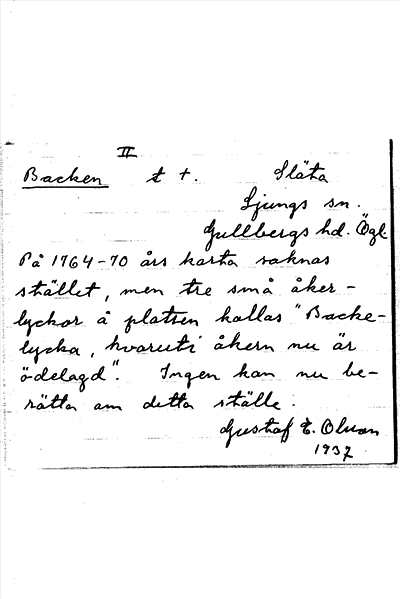 II
Backen t +. Släta
Ljungs sn.
Gullbergs hd. Ögl
På 1764-70 års karta saknas
stället, men tre små åker-
lyckor å platsen kallas "Backe-
lycka, hvaruti åkern nu är
ödelagd". Ingen kan nu be-
rätta om detta ställe.
Gustaf E. Olsson
1937